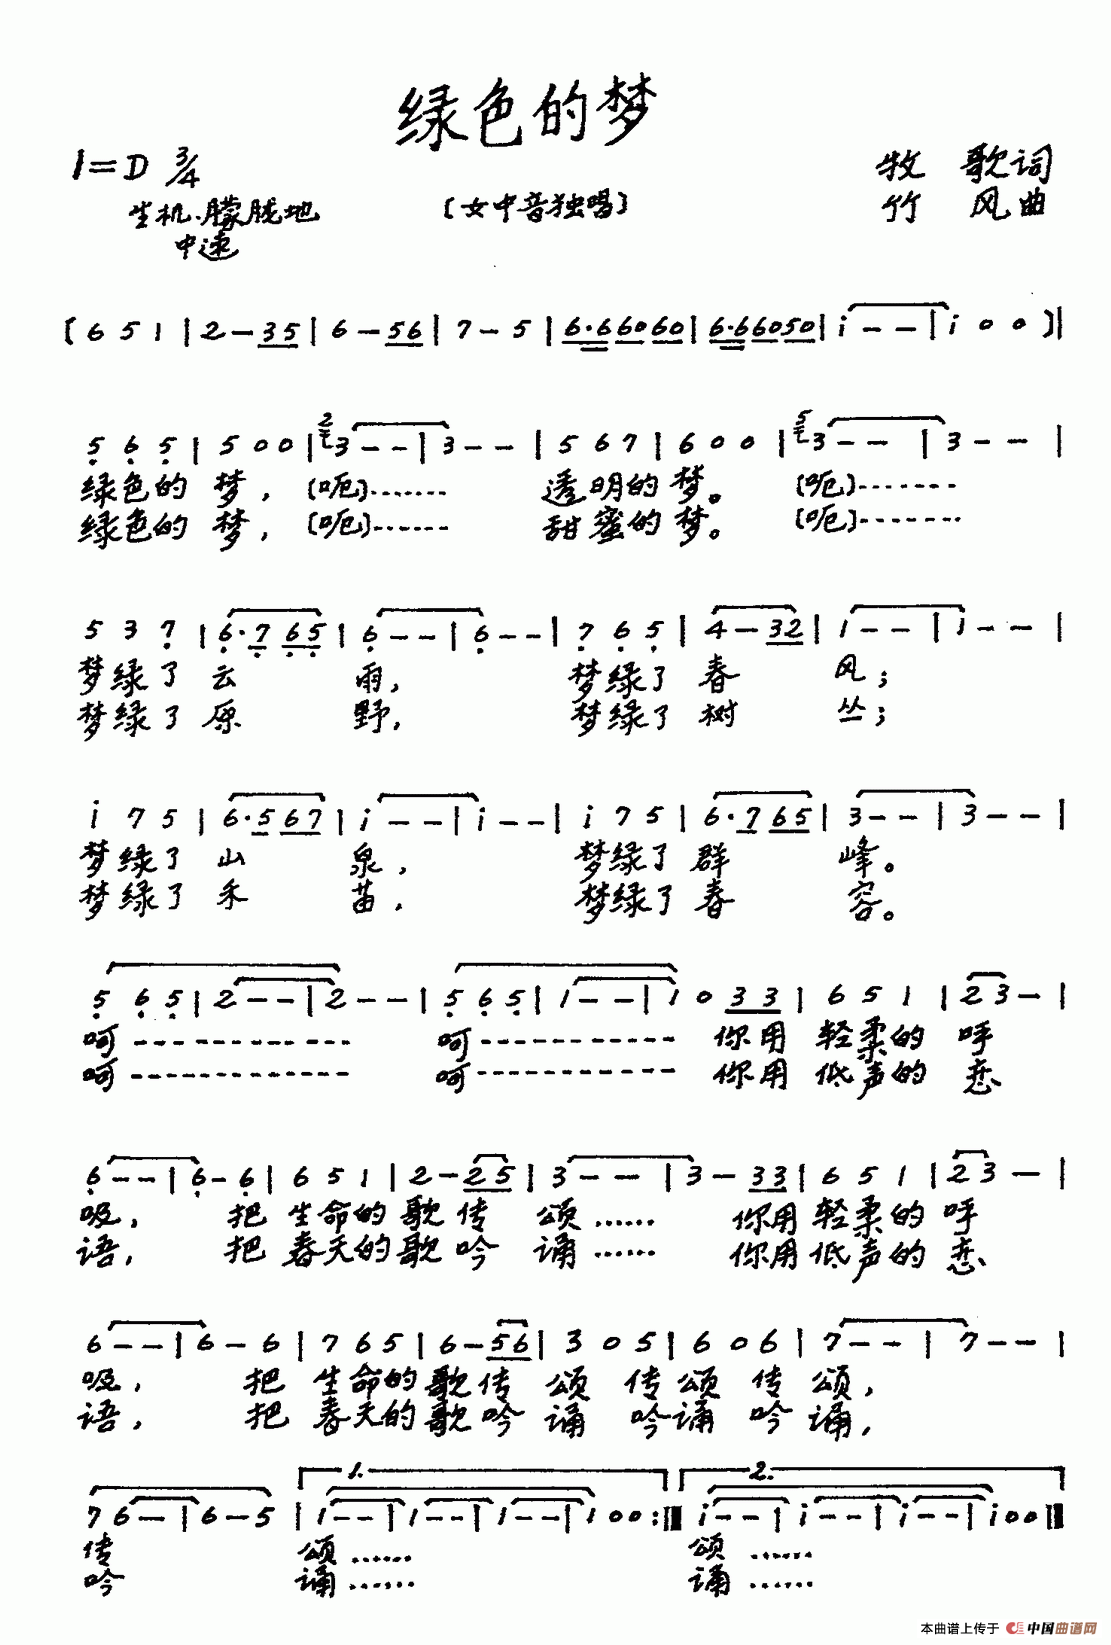 绿色的梦
1=D 3/4
牧 歌词
生机.朦胧地
〔女中音独唱〕
竹 风曲
中速
〔6 5 1 | 2 - 35 | 6 - 56 | 7 - 5 | 6·66060 | 6·66050 | i - - | i 0 0 〕‖
5 6 5 | 5 0 0 | 2 3 - - | 3 - - | 5 6 7 | 6 0 0 | 5 3 - - | 3 - - |
绿色的 梦, 〔呃〕······· 透明的 梦。 〔呃〕·······
绿色的 梦, 〔呃〕······· 甜蜜的 梦。 〔呃〕·······
5 3 7 | 6·7 65 | 6 - - | 6 - - | 7 6 5 | 4 - 32 | 1 - - | 1 - - |
梦绿了 云 雨, 梦绿了 春 风;
梦绿了 原 野, 梦绿了 树 丛;
i 7 5 | 6·5 67 | i - - | i - - | i 7 5 | 6·7 65 | 3 - - | 3 - - |
梦绿了 山 泉, 梦绿了 群 峰。
梦绿了 禾 苗, 梦绿了 春 容。
5 6 5 | 2 - - | 2 - - | 5 6 5 | 1 - - | 1 0 33 | 6 5 1 | 23 - |
呵 ------------ 呵 ------------ 你用 轻柔的 呼
呵 ------------ 呵 ------------ 你用 低声的 恋
6 - - | 6 - 6 | 6 5 1 | 2 - 25 | 3 - - | 3 - 33 | 6 5 1 | 23 - |
吸, 把 生命的 歌传 颂 ...... 你用 轻柔的 呼
语, 把 春天的 歌吟 诵 ...... 你用 低声的 恋
6 - - | 6 - 6 | 7 6 5 | 6 - 56 | 3 0 5 | 6 0 6 | 7 - - | 7 - - |
吸, 把 生命的 歌传 颂 传颂 传 颂,
语, 把 春天的 歌吟 诵 吟诵 吟 诵,
1. 2.
7 6 - | 6 - 5 | 1 - - | 1 - - | 1 - - | 1 0 0 :‖ i - - | i - - | i - - | i 0 0 ‖
传 颂 ...... 颂 ......
吟 诵 ...... 诵 ......
本曲谱上传于 中国曲谱网